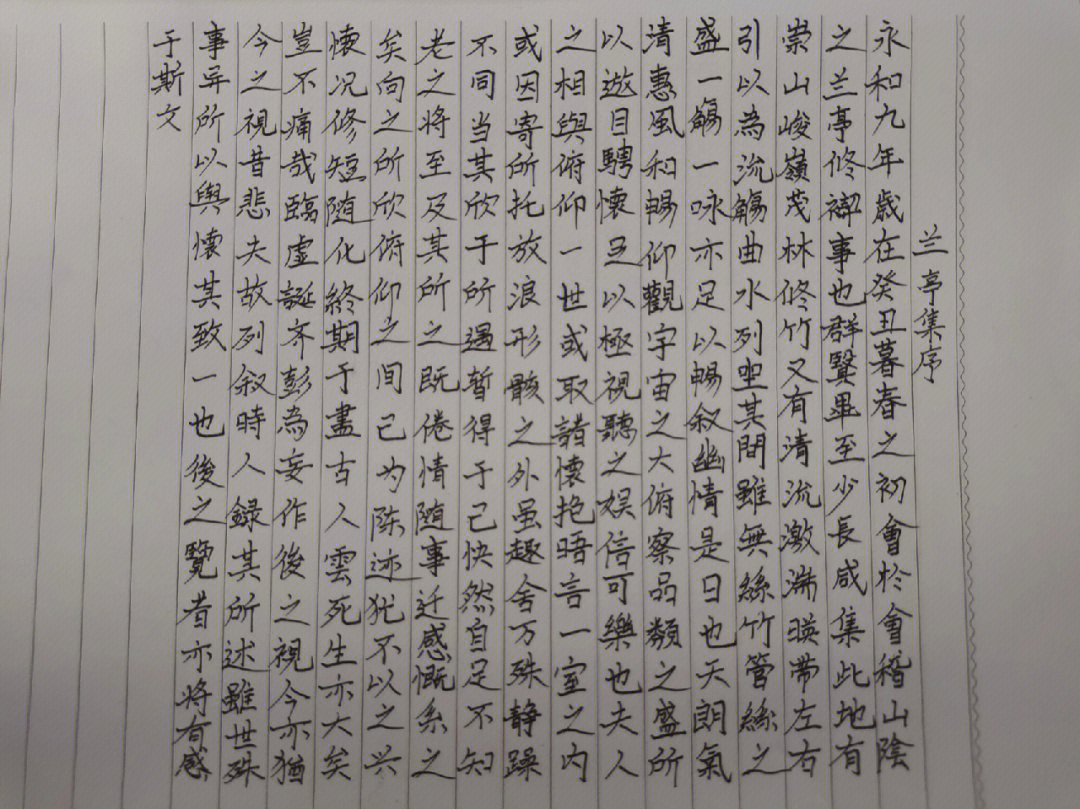 兰亭集序
永和九年歲在癸丑暮春之初會於會稽山陰
之兰亭修禊事也群賢畢至少長咸集此地有
崇山峻嶺茂林修竹又有清流激湍暎帶左右
引以為流觴曲水列坐其間雖無絲竹管絲之
盛一觴一咏亦足以暢叙幽情是日也天朗氣
清惠風和暢仰觀宇宙之大俯察品類之盛所
以遊目騁懷足以極視聽之娱信可樂也夫人
之相與俯仰一世或取諸懷抱晤言一室之内
或因寄所托放浪形骸之外虽趣舍万殊静躁
不同当其欣于所遇暫得于己快然自足不知
老之将至及其所之既倦情随事迁感慨系之
矣向之所欣俯仰之间已为陈迹犹不以之兴
懷况修短随化終期于盡古人雲死生亦大矣
豈不痛哉臨虚誕齐彭為妄作後之視今亦猶
今之視昔悲夫故列叙時人録其所述雖世殊
事异所以興懷其致一也後之覽者亦将有感
于斯文